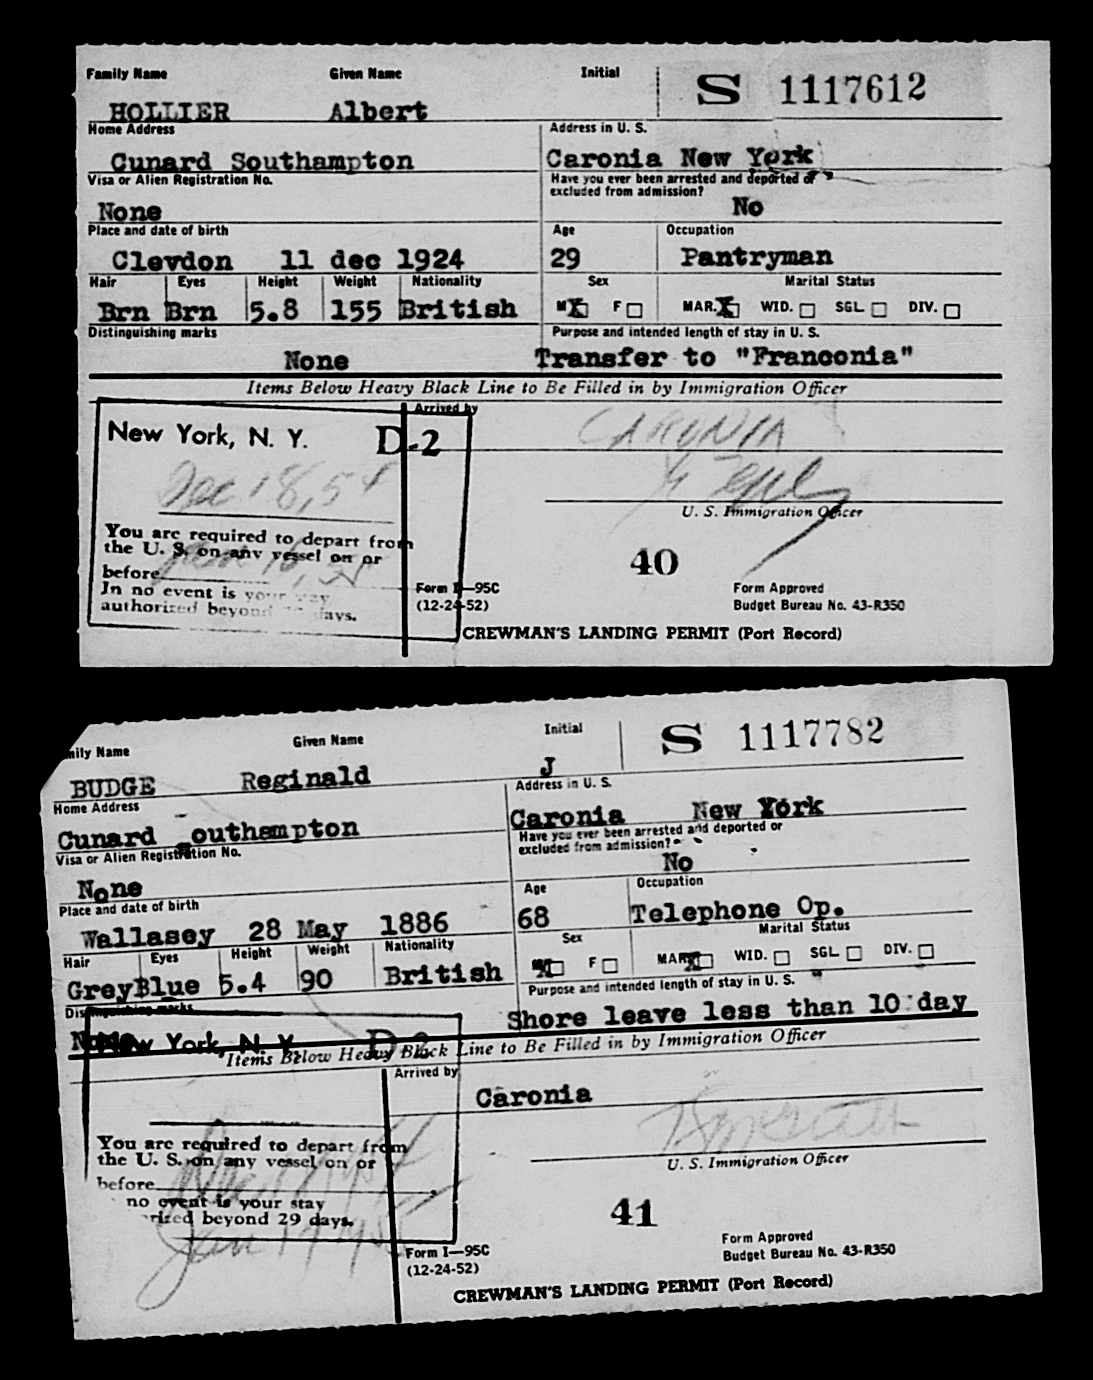 Family Name Given Name Initial S 1117612
HOLLIER Albert
Home Address Address in U. S.
Cunard Southampton Caronia New York
Visa or Alien Registration No. Have you ever been arrested and deported or
excluded from admission?
None No
Place and date of birth Age Occupation
Clevdon 11 dec 1924 29 Pantryman
Hair Eyes Height Weight Nationality Sex Marital Status
Brn Brn 5.8 155 British M X F MAR. X WID. SGL. DIV.
Distinguishing marks Purpose and intended length of stay in U. S.
None Transfer to "Franconia"
Items Below Heavy Black Line to Be Filled in by Immigration Officer
Arrived by
New York, N. Y. D-2 CARONIA
Dec 18, 54
U. S. Immigration Officer
You are required to depart from
the U. S. on any vessel on or
before
In no event is your stay
authorized beyond days.
40
Form I—95C Form Approved
(12-24-52) Budget Bureau No. 43-R350
CREWMAN'S LANDING PERMIT (Port Record)
mily Name Given Name Initial S 1117782
BUDGE Reginald J
Home Address Address in U. S.
Cunard outhampton Caronia New York
Visa or Alien Registration No. Have you ever been arrested and deported or
excluded from admission?
None No
Place and date of birth Age Occupation
Wallasey 28 May 1886 68 Telephone Op.
Hair Eyes Height Weight Nationality Sex Marital Status
Grey Blue 5.4 90 British M X F MAR. X WID. SGL. DIV.
Distinguishing marks Purpose and intended length of stay in U. S.
None Shore leave less than 10 day
New York, N. Y. D-2
Items Below Heavy Black Line to Be Filled in by Immigration Officer
Arrived by
Caronia
U. S. Immigration Officer
You are required to depart from
the U. S. on any vessel on or
before
no event is your stay
rized beyond 29 days.
41
Form I—95C Form Approved
(12-24-52) Budget Bureau No. 43-R350
CREWMAN'S LANDING PERMIT (Port Record)